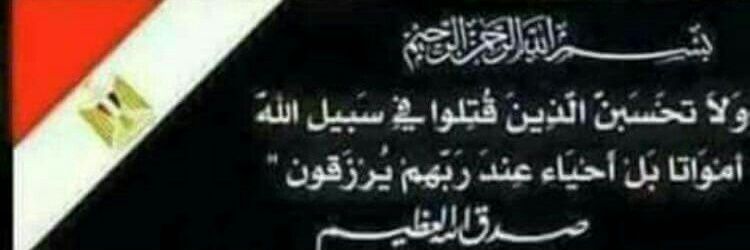 بسم الله الرحمن الرحيم
وَلاَ تحْسَبَنّ الّذِينَ قُتِلوا في سَبيل اللهّ
امْوَاتا بَلْ أحْيَاء عِندَ رَبّهمْ يُرْزَقون "
صدق الله العظيم